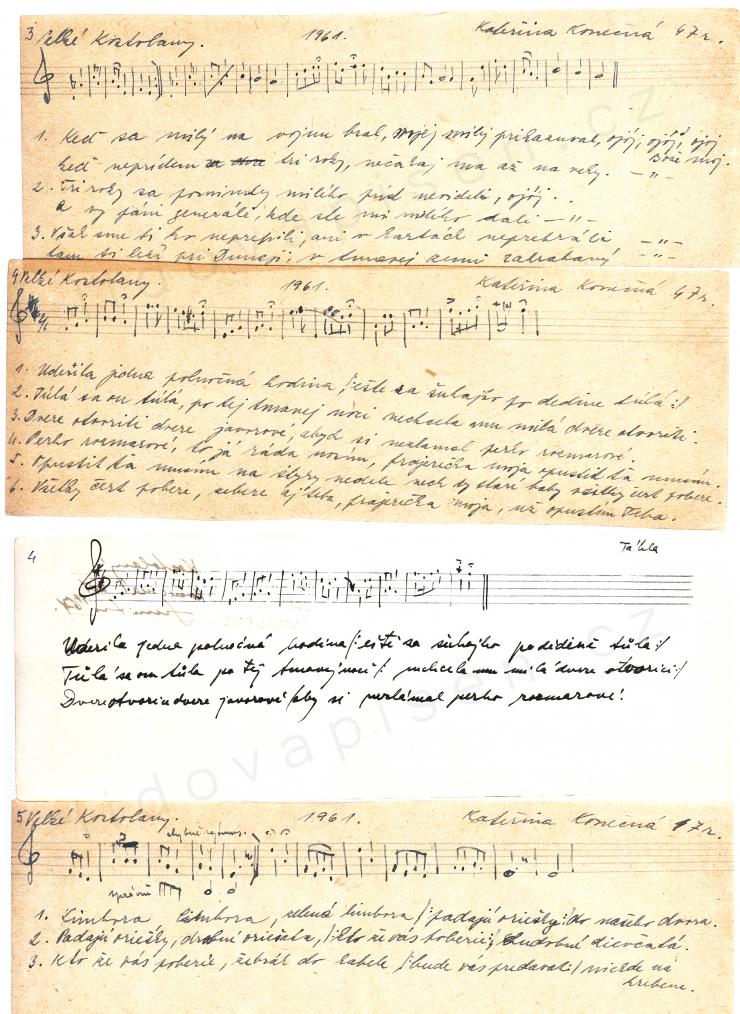 3 Velké Kostolany. 1961. Kateřina Konečná 47r.
1. Keď sa milý na vojnu bral, mojej milej prikazoval, ojój, ojój, ojój
Bože moj.
keď neprídem tri roky, nečakaj ma až na veky. -"-
2. Tri roky sa pominuly milého prísť nevideli, ojój..
a vy páni generáli, kde ste mi milého dali -"-
3. Však sme ti ho neprepili, ani v kartách neprehráli -"-
tam ti leží pri Dunaji, v tmavej zemi zakrabaný -"-
4 Velké Kostolany. 1961. Kateřina Konečná 47r.
1. Udeřila jedna polnočná hodina /:ešte sa šuhajko po dedine túlá:/
2. Túlá sa on túlá, po tej tmavej noci nechcela mu milá dvere otvoriti.
3. Dvere otvorili dvere javorové, abys si nezlamal perko rozmarové.
4. Perko rozmarové, to já ráda nosím, frajerička moja opustit ťa musím.
5. Opustit ťa musím na štyry nedele nech ty staré baby všetky čert pobere.
6. Všetky čert pobere, zebere aj teba, frajerička moja, už opustím Teba.
4 Táhla
Uderila jedna polnočná hodina /:ešťe sa šuhajko po dědině túla:/
Túla sa on túla po tej tmavej noci /: nechcela mu milá dvere otvorici:/
Dvere otvorila dvere javorové /aby si nezlámal perko rozmarové!
5 Velké Kostolany. 1961. Kateřina Konečná 47r.
chybně
správně
1. Limbora limbora, zelená limbora /:padajú oriešky:/ do našeho dvora.
2. Padajú oriešky, drobné oriešata, /:kto že vás poberie:/ chudobné dievčatá.
3. Kto že vás poberie, žebrák do kabele /:bude vás predavati:/ niekde na
hrebene.
lidovapisen.cz